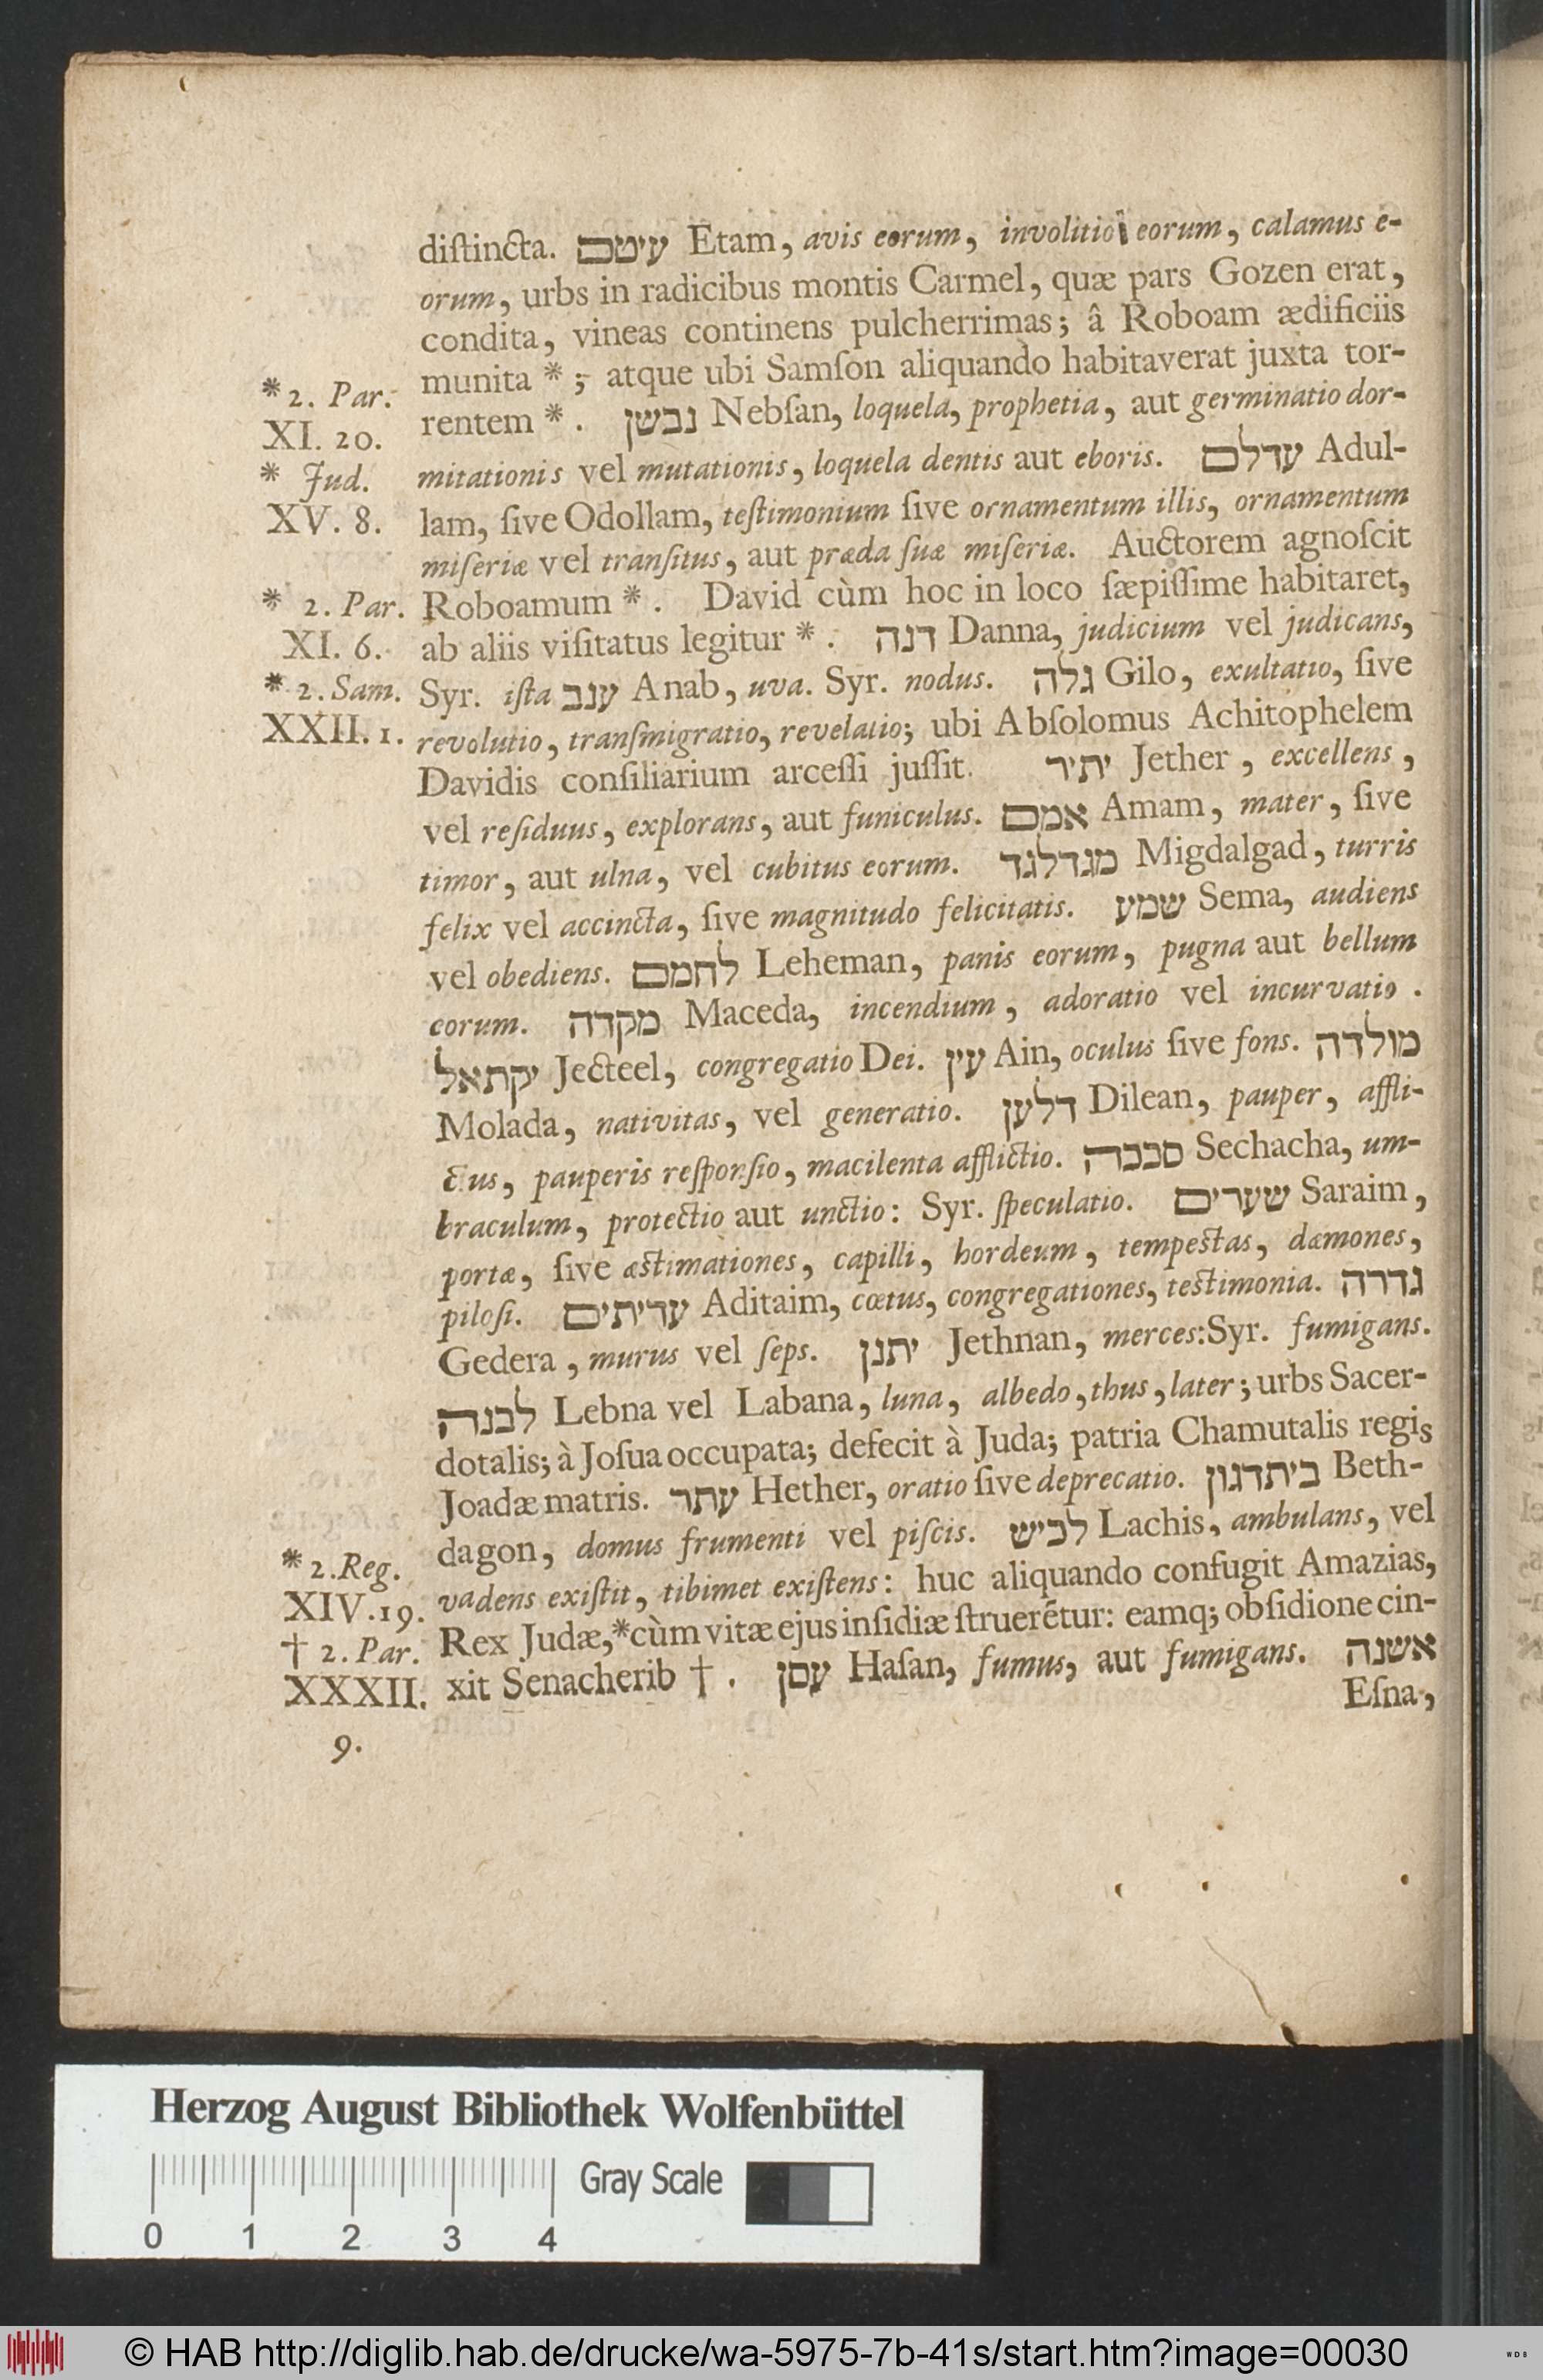 diſtincta. עיטם Etam, avis eorum, involitio eorum, calamus e-
orum, urbs in radicibus montis Carmel, quæ pars Gozen erat,
condita, vineas continens pulcherrimas; â Roboam ædificiis
munita * ; atque ubi Samſon aliquando habitaverat juxta tor-
rentem * . נבשן Nebſan, loquela, prophetia, aut germinatio dor-
mitationis vel mutationis, loquela dentis aut eboris. עדלם Adul-
lam, ſive Odollam, teſtimonium ſive ornamentum illis, ornamentum
miſeriæ vel tranſitus, aut præda ſuæ miſeriæ. Auctorem agnoſcit
Roboamum * . David cùm hoc in loco ſæpiſſime habitaret,
ab aliis viſitatus legitur * . דנה Danna, judicium vel judicans,
Syr. iſta ענב Anab, uva. Syr. nodus. גלה Gilo, exultatio, ſive
revolutio, tranſmigratio, revelatio; ubi Abſolomus Achitophelem
Davidis conſiliarium arceſſi juſſit. יתיר Jether, excellens,
vel reſiduus, explorans, aut funiculus. אמם Amam, mater, ſive
timor, aut ulna, vel cubitus eorum. מגדלגד Migdalgad, turris
felix vel accincta, ſive magnitudo felicitatis. שמע Sema, audiens
vel obediens. לחמם Leheman, panis eorum, pugna aut bellum
eorum. מקדה Maceda, incendium, adoratio vel incurvatio.
יקתאל Jecteel, congregatio Dei. עין Ain, oculus ſive fons. מולדה
Molada, nativitas, vel generatio. דלען Dilean, pauper, affli-
ctus, pauperis reſponſio, macilenta afflictio. סככה Sechacha, um-
braculum, protectio aut unctio: Syr. ſpeculatio. שערים Saraim,
portæ, ſive æstimationes, capilli, hordeum, tempestas, dæmones,
piloſi. עדיתים Aditaim, cœtus, congregationes, testimonia. גדרה
Gedera, murus vel ſeps. יתנן Jethnan, merces: Syr. fumigans.
לבנה Lebna vel Labana, luna, albedo, thus, later; urbs Sacer-
dotalis; à Joſua occupata; defecit à Juda; patria Chamutalis regis
Joadæ matris. עתר Hether, oratio ſive deprecatio. ביתדגון Beth-
dagon, domus frumenti vel piſcis. לכיש Lachis, ambulans, vel
vadens exiſtit, tibimet exiſtens: huc aliquando confugit Amazias,
Rex Judæ,* cùm vitæ ejus inſidiæ ſtruerētur: eamq; obſidione cin-
xit Senacherib † . עסן Haſan, fumus, aut fumigans. אשנה
Eſna,
* 2. Par.
XI. 20.
* Jud.
XV. 8.
* 2. Par.
XI. 6.
* 2. Sam.
XXII. 1.
* 2. Reg.
XIV. 19.
† 2. Par.
XXXII.
9.
Herzog August Bibliothek Wolfenbüttel
Gray Scale
0 1 2 3 4
© HAB http://diglib.hab.de/drucke/wa-5975-7b-41s/start.htm?image=00030
WDB